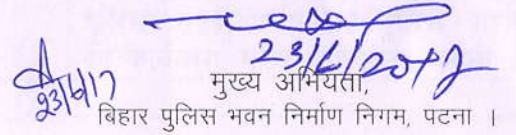 23/6/2017
23/6/17
मुख्य अभियंता,
बिहार पुलिस भवन निर्माण निगम, पटना ।